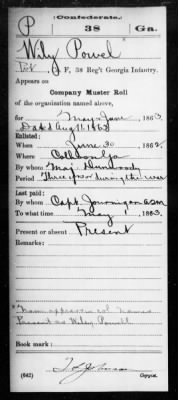 Confederate.
P 38 Ga.
Wiley Powel
Pvt, Co. F, 38 Reg't Georgia Infantry.
Appears on
Company Muster Roll
of the organization named above,
for May & June, 1863.
Dated Aug 11, 1863
Enlisted:
When June 30, 1862.
Where Ga
By whom Maj.
Period Three years or during the war
Last paid:
By whom Capt.
To what time May 1, 1863.
Present or absent Present
Remarks:
Name appears in col. names
Present as Wiley Powell
Book mark:
(642) Copyist.